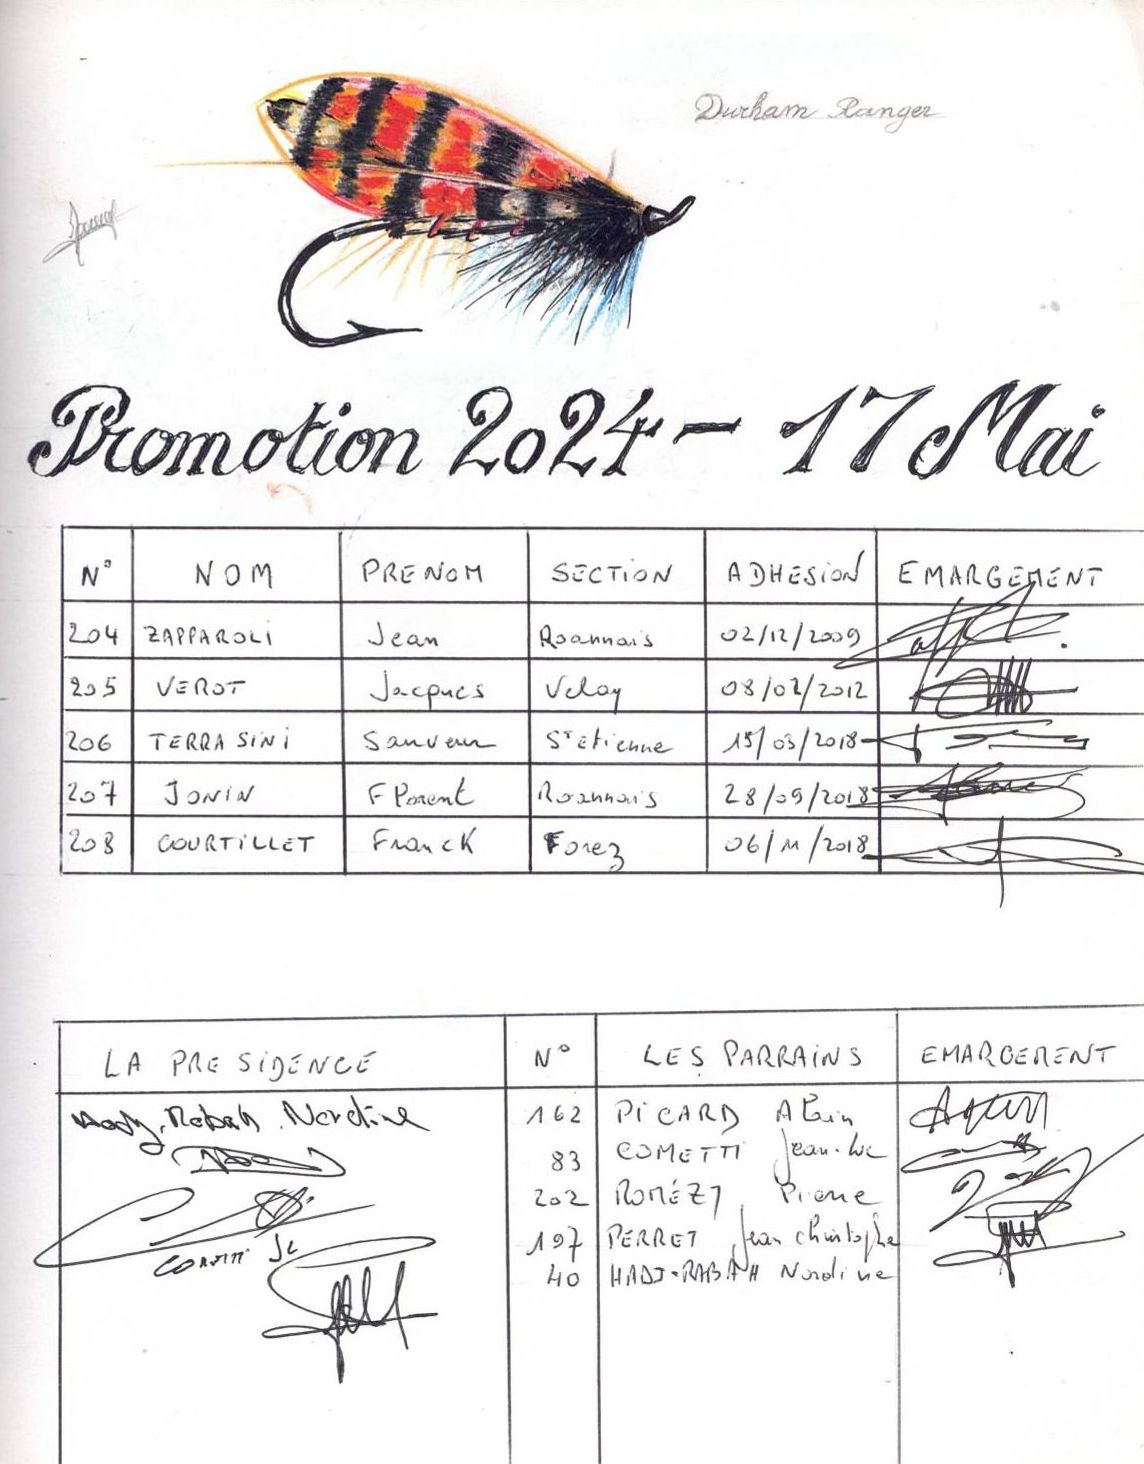 Durham Ranger
Promotion 2024 - 17 Mai
N° NOM PRENOM SECTION ADHESION EMARGEMENT
204 ZAPPAROLI Jean Roannais 02/12/2009
205 VEROT Jacques Velay 08/02/2012
206 TERRASINI Sauveur St Etienne 15/03/2018
207 JONIN Florent Roannais 28/09/2018
208 COURTILLET Franck Forez 06/11/2018
LA PRESIDENCE N° LES PARRAINS EMARGEMENT
Hadj-Rabah Nordine 162 PICARD Alain
83 COMETTI Jean-Luc
202 ROMÉZY Pierre
197 PERRET Jean Christophe
COMETTI JL
40 HADJ-RABAH Nordine